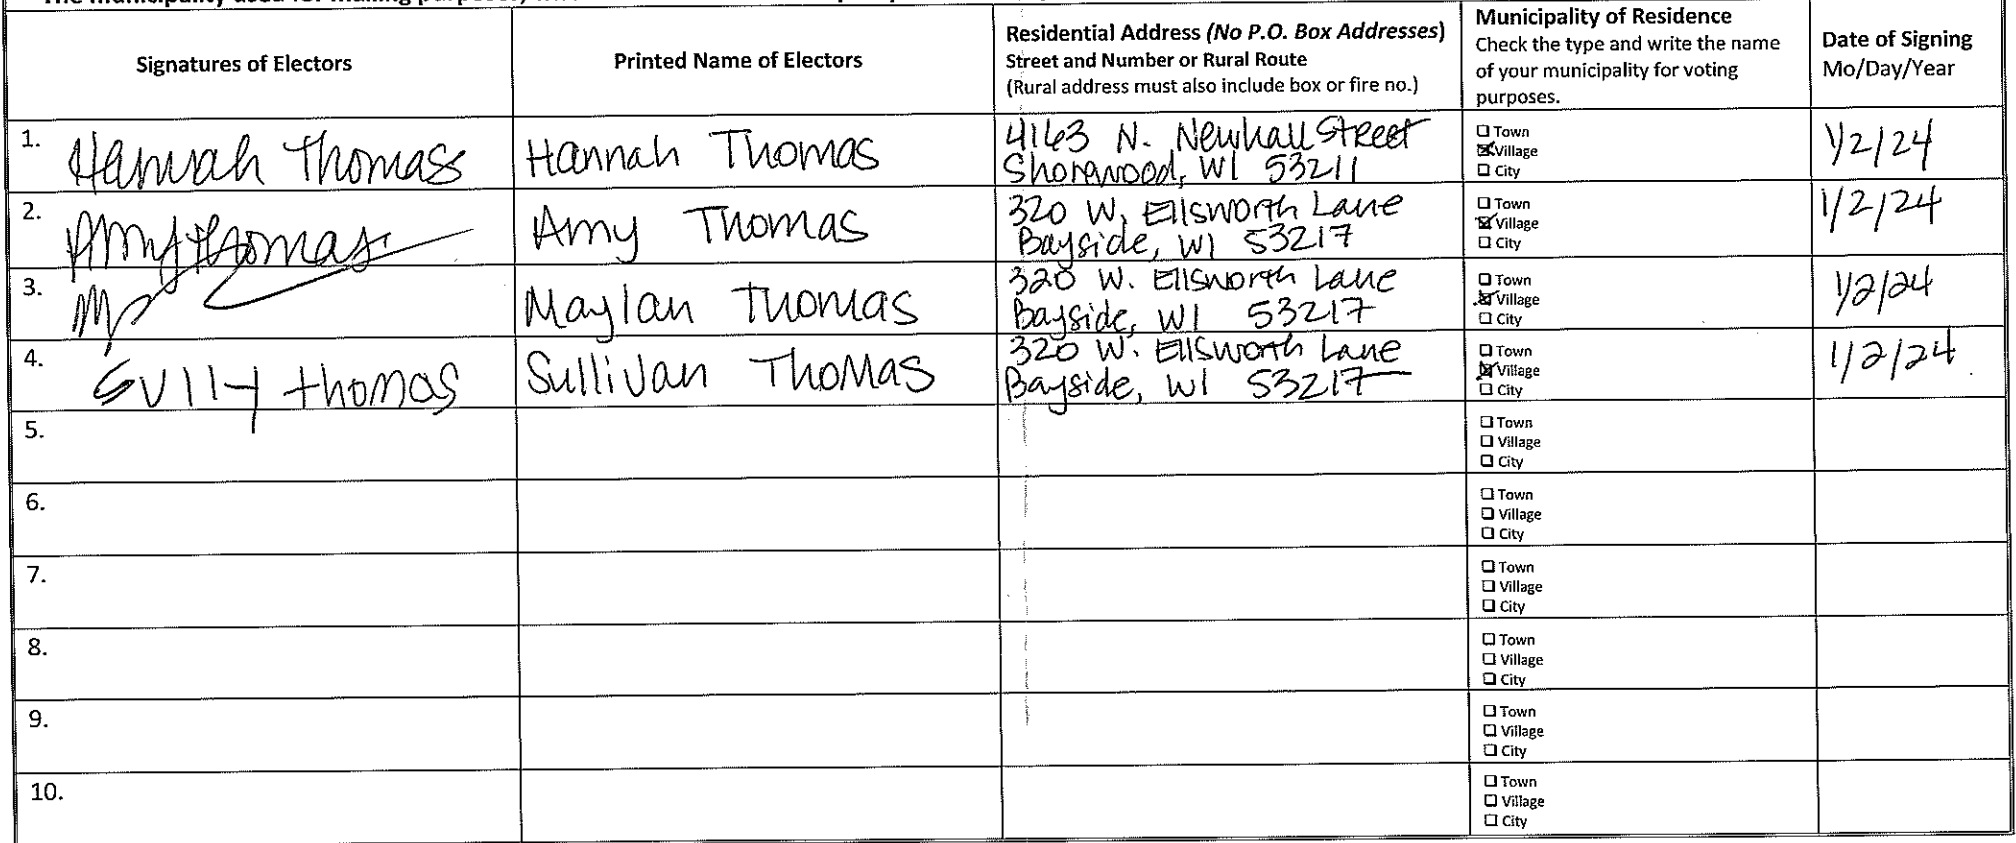 Signatures of Electors
Printed Name of Electors
Residential Address (No P.O. Box Addresses)
Street and Number or Rural Route
(Rural address must also include box or fire no.)
Municipality of Residence
Check the type and write the name
of your municipality for voting
purposes.
Date of Signing
Mo/Day/Year
1.
Hannah Thomas
Hannah Thomas
4163 N. Newhall Street
Shorewood, WI 53211
Town
Village
City
1/2/24
2.
Amy Thomas
Amy Thomas
320 W. Ellsworth Lane
Bayside, WI 53217
Town
Village
City
1/2/24
3.
Maylan Thomas
320 W. Ellsworth Lane
Bayside, WI 53217
Town
Village
City
1/2/24
4.
Sully thomas
Sullivan Thomas
320 W. Ellsworth Lane
Bayside, WI 53217
Town
Village
City
1/2/24
5.
Town
Village
City
6.
Town
Village
City
7.
Town
Village
City
8.
Town
Village
City
9.
Town
Village
City
10.
Town
Village
City